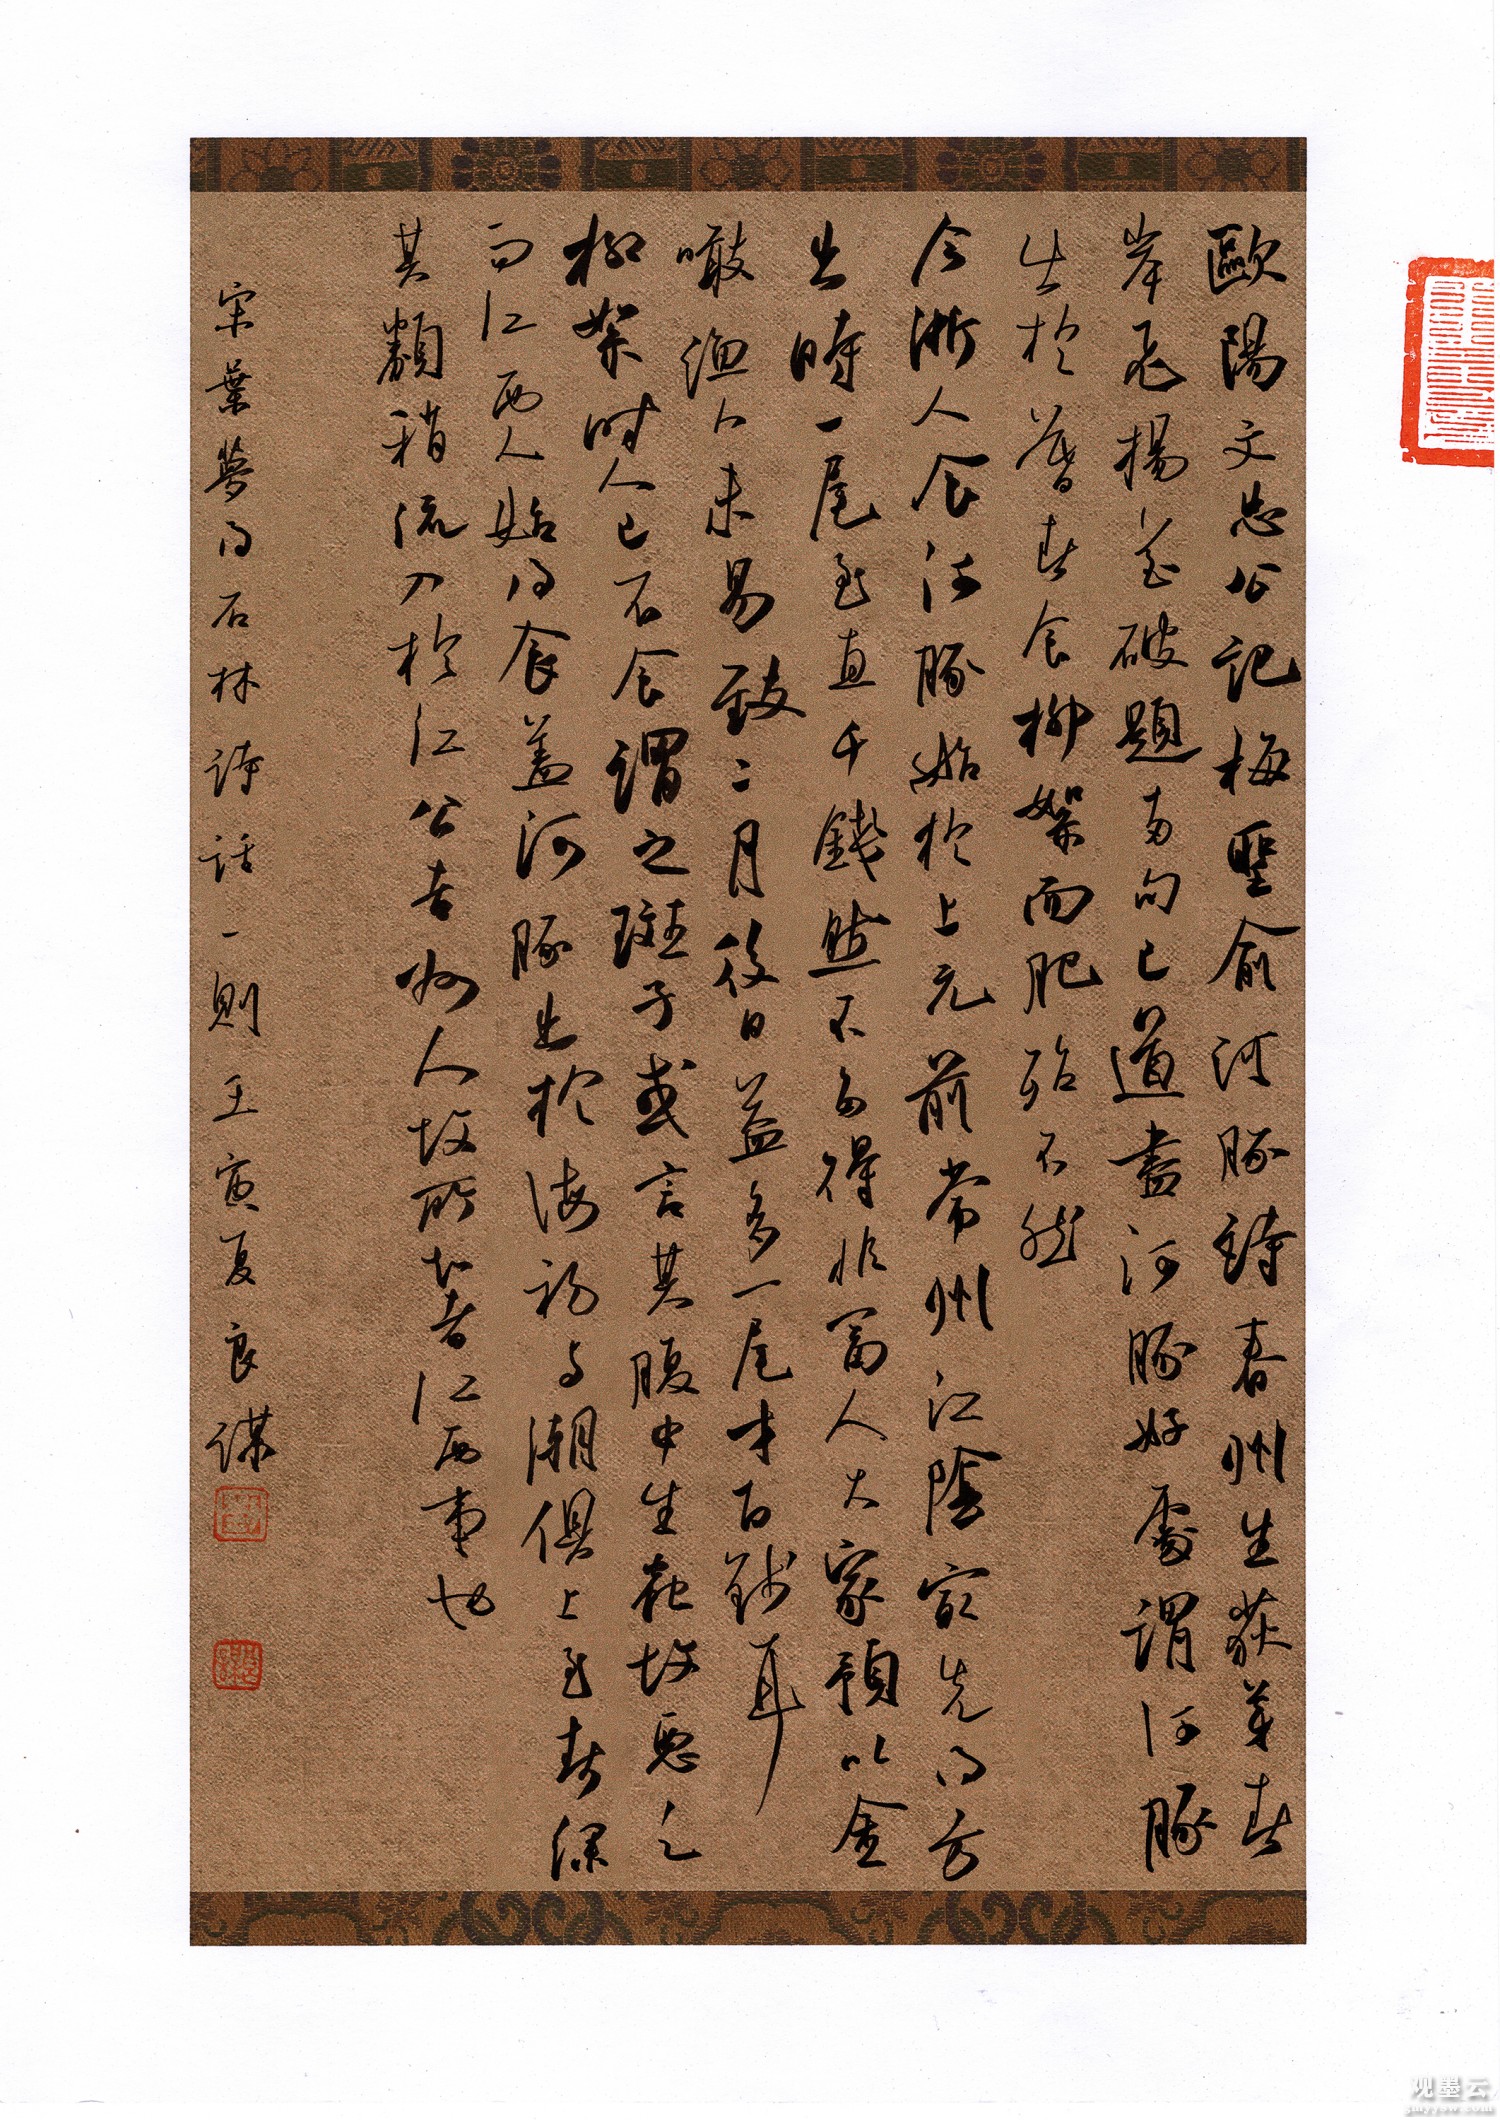 歐陽文忠公記梅聖俞河豚詩春州生荻芽春
岸飛揚花破題兩句已道盡河豚好處謂河豚
出於暮春食柳絮而肥殆不然
今浙人食河豚始於上元前常州江陰最先得方
出時一尾至直千錢然不多得非富人大家預以金
噉漁人未易致二月後日益多一尾才百錢耳
柳絮時人已不食謂之斑子或言其腹中生蟲故惡之
而江西人始得食蓋河豚出於海初與潮俱上至春深
其類稍流入於江公吉州人故所知者江西事也
宋葉夢得石林詩話一則壬寅夏良謀
观墨云
gmyysw.com